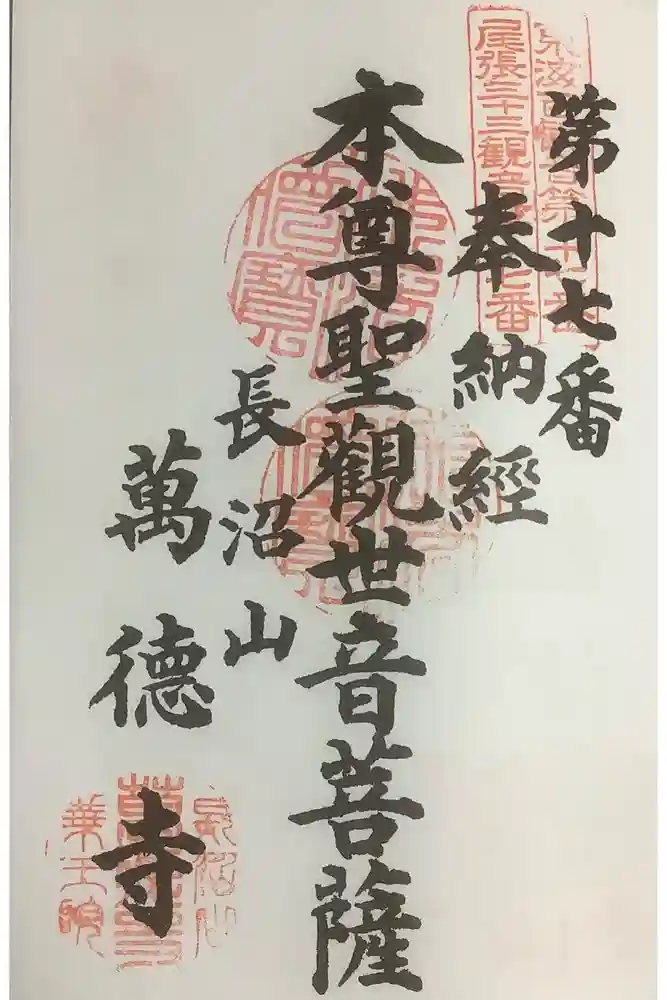 第十七番
奉納經
本尊聖觀世音菩薩
長沼山
萬德寺
尾張三十三觀音第十七番
長沼山
萬德寺
華王院